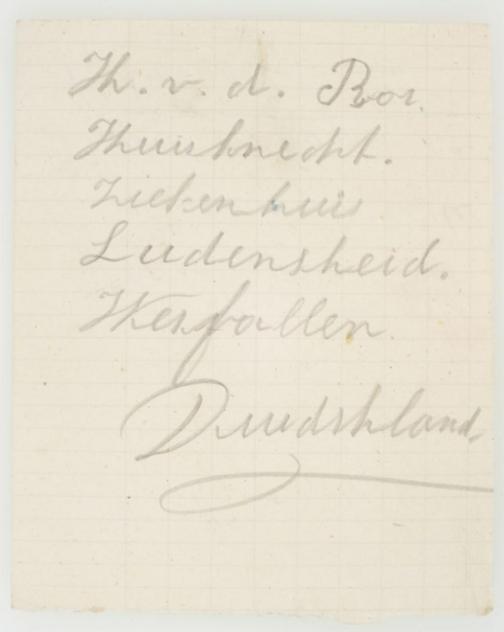 H. v. d. Bos.
Huisknecht.
Ziekenhuis
Ludensheid.
Wesfallen.
Duidshland.